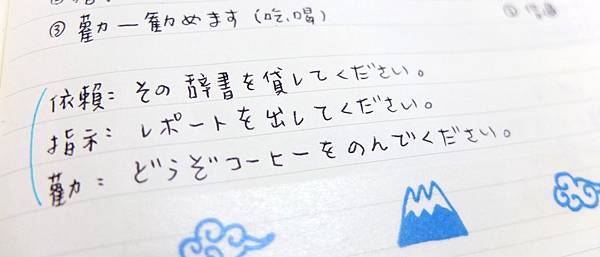 ③ 勸一勧めます(吃、喝)
依賴:その辞書を貸してください。
指示:レポートを出してください。
勸:どうぞコーヒーをのんでください。